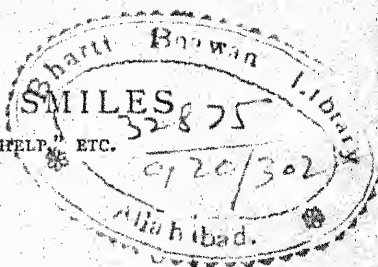 Bharti Bhawan Library
SMILES
32875
HELP," ETC.
920/302
Allahabad.